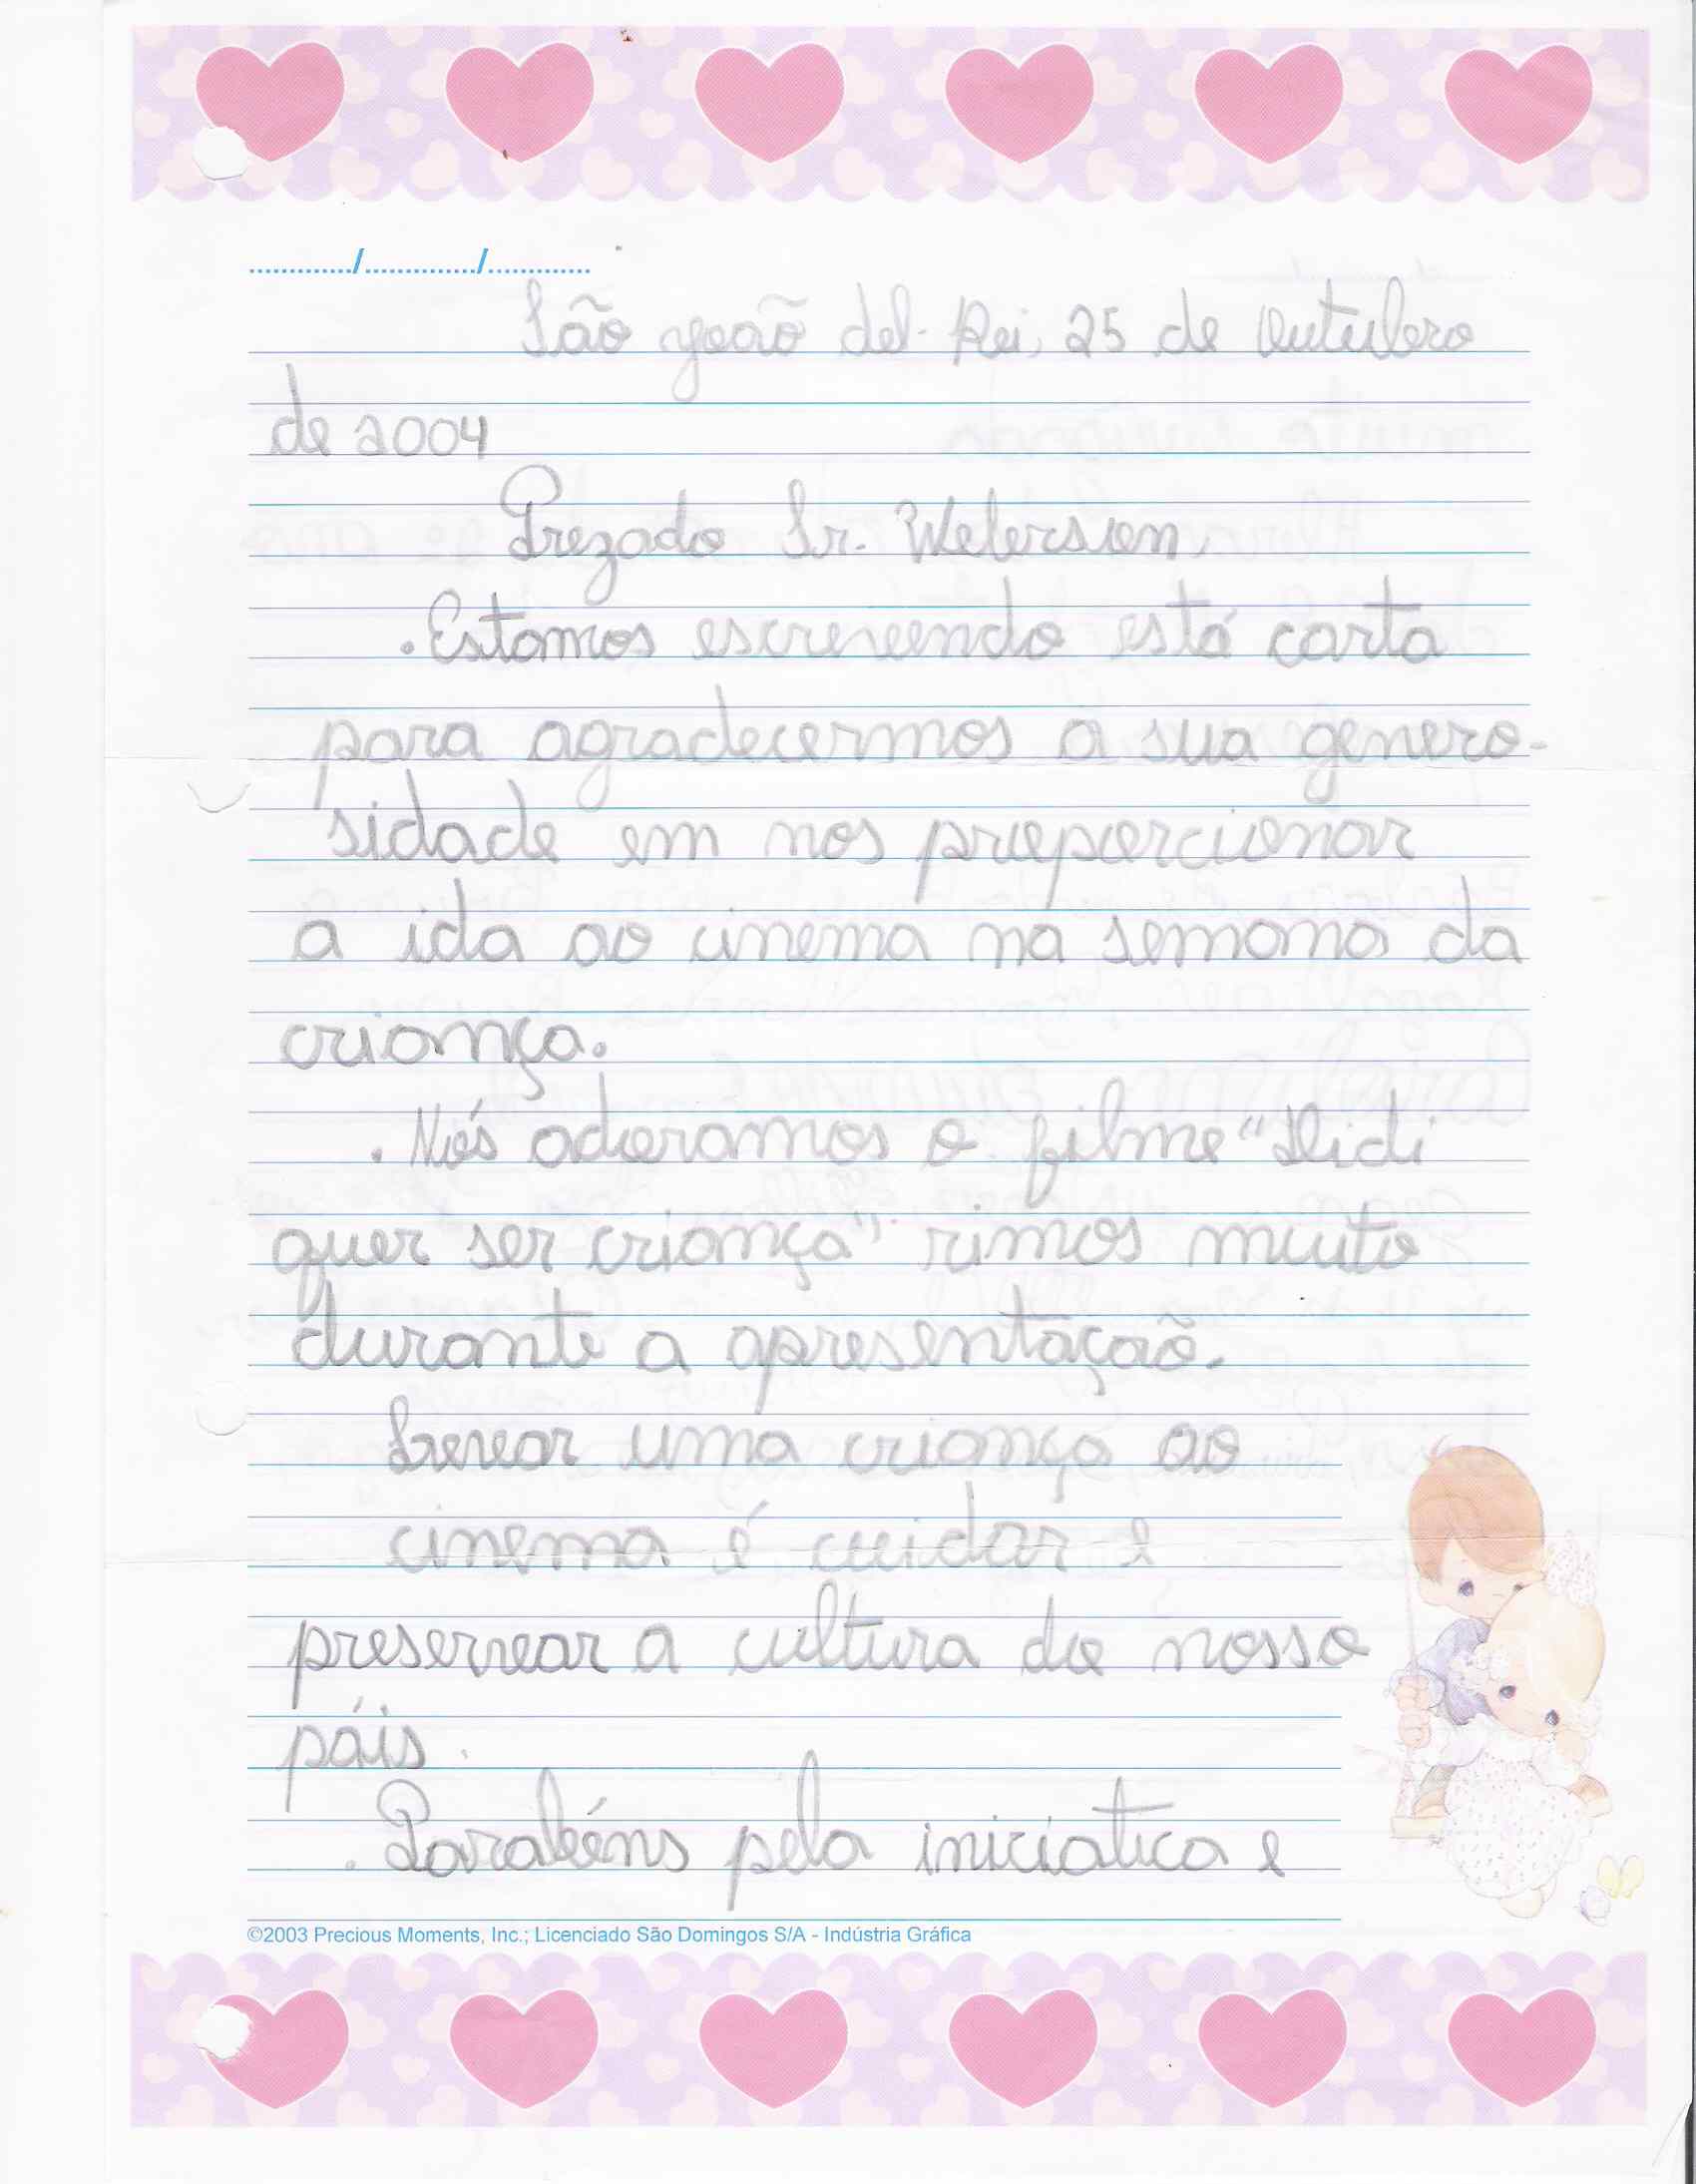 ............./............../.............
São joaõ del-Rei, 25 de Outubro
de 2004
Prezado Sr. Weberson
. Estamos escrevendo está carta
para agradecermos a sua genero-
sidade em nos proporcionar
a ida ao cinema na semana da
criança.
. Nós adoramos o filme "Didi
quer ser criança" rimos muito
durante a apresentaçaõ.
Levar uma criança ao
cinema é cuidar e
preservar a cultura do nosso
páis.
. Parabéns pela iniciativa e
©2003 Precious Moments, Inc.; Licenciado São Domingos S/A - Indústria Gráfica